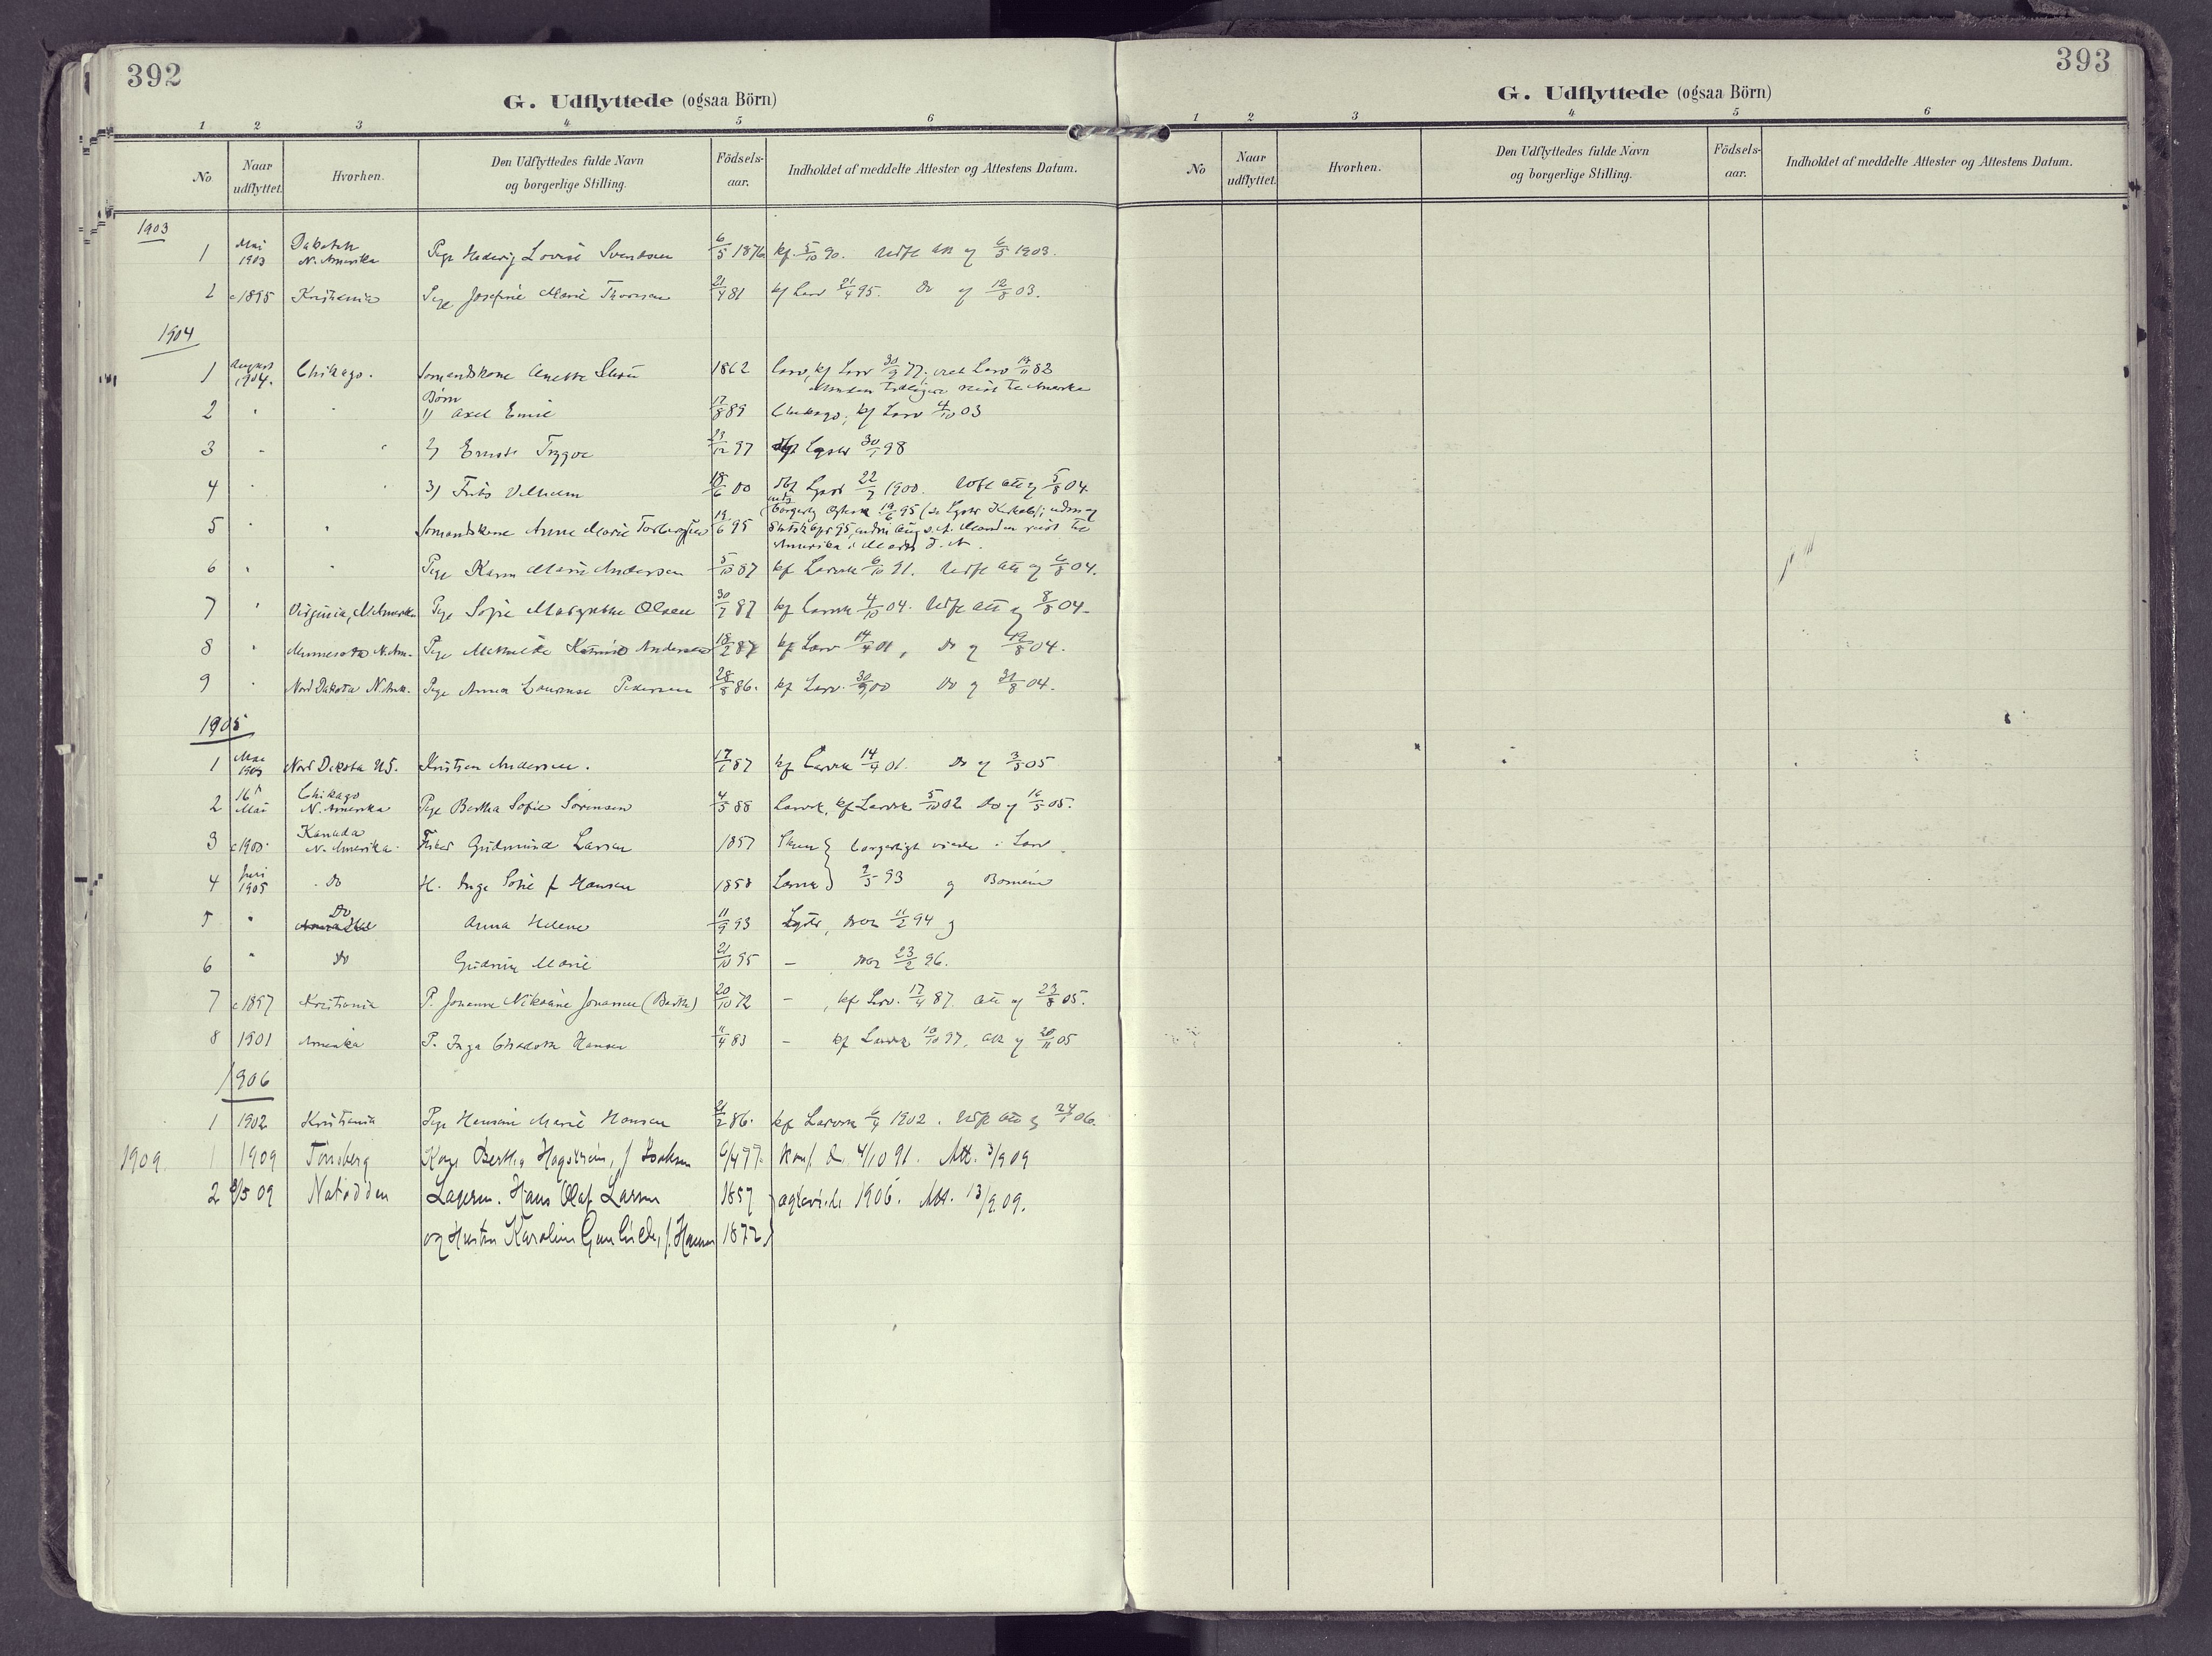 392
G. Udflyttede (ogsaa Börn)
1 2 3 4 5 6
No Naar udflyttet. Hvorhen. Den Udflyttedes fulde Navn og borgerlige Stilling. Födsels-aar. Indholdet af meddelte Attester og Attestens Datum.
1903
1 Mai 1903 Dakotah N. Amerika Pige Hedevig Lovise Svendsen 6/5 1876 kf. 5/10 90. Udfl. att. 6/5 1903.
2 c 1895 Kristiania Pige Josefine Marie Thorsen 21/4 81 kf Larv 21/4 95. Do 12/8 03.
1904
1 August 1904. Chikago. Sömandskone Anette 1862 Larv, kf Larv 30/9 77, viet Larv 82
Manden tidligere reist til Amerika
Börn
2 " " 1) Axel Emil 17/8 89 Chikago, kf Larv 4/10 03
3 " " 2) Ernst Trygve 23/12 97 30/1 98
4 " " 3) Frits Vilhelm 18/6 00 22/7 1900. Udfl att 5/8 04.
5 " " Sömandskone Anne Marie Torbergsen 19/6 95
Manden reist til
Amerika i Marts d. A.
6 " " Pige Karen Marie Andersen 5/10 87 kf Larvik 6/10 Udfl att 6/8 04.
7 " Virginia, N. Amerika Pige Sofie Margrethe Olsen 30/7 87 kf Larvik 4/10 04. Udfl att 8/8 04.
8 " Minnesota N. Am. Pige Mathilde Andersen 18/2 87 kf Larv 14/4 01, Do 19/8 04.
9 " Nord Dakota N. Am. Pige Anna Lourense Pedersen 28/8 86. kf Larv. 30/9 00 Do 31/8 04.
1905
1 Mai 1905 Nord Dakota U.S. Kristian Andersen. 17/1 87 kf Larvik 14/4 01. Do 3/5 05
2 16de Mai Chikago N. Amerika Pige Bertha Sofie Sörensen 4/5 88 Larvik, kf Larvik 5/10 02 Do 16/5 05.
3 c 1900. Kanada N. Amerika. Fisker Gudmund Larsen 1857 Skien } borgerligt viede i Larv.
4 Juni 1905 Do H. Inga Sofie f Hansen 1858 Larvik } 2/5 93
5 " Do Anna Helene 11/9 93 11/2 94
6 " Do Gudrun Marie 21/10 95 — 23/2 96.
7 c 1897 Kristiania P. Johanne Nikoline Johansen (Berthe) 20/10 72 — , kf Larv. 17/4 87. att 23/8 05.
8 1901 Amerika P. Inga Charlotte Hansen 11/4 83 — kf Larvik 10/10 97, att 20/11 05
1906
1 1902 Kristiania Pige Hansine Marie Hansen 21/2 86. kf Larvik 6/4 1902. Udfl att 24/1 06.
1909. 1 1909 Tönsberg Bertha Hagström, f Isaksen 6/4 77. Konf. 4/10 91. Att. 3/9 09
2 3/5 09 Notodden Lagerm. Hans Olaf Larsen 1857 } ægteviede 1906. Att. 13/9 09.
og Hustru Karoline Gunhilde, f. Hansen 1872 }
393
G. Udflyttede (ogsaa Börn)
1 2 3 4 5 6
No Naar udflyttet. Hvorhen. Den Udflyttedes fulde Navn og borgerlige Stilling. Födsels-aar. Indholdet af meddelte Attester og Attestens Datum.